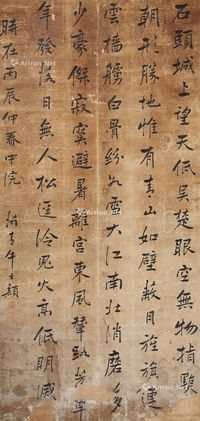 石頭城上望天低吳楚眼空無物指點
朝形勝地惟有青山如壁蔽日旌旗連
雲檣艣白骨紛如雪大江南北消磨多
少豪傑寂寞避暑離宮東風輦路芳草
年發落日無人松逕冷鬼火高低明滅
時在丙辰仲春中浣 青牛士顥